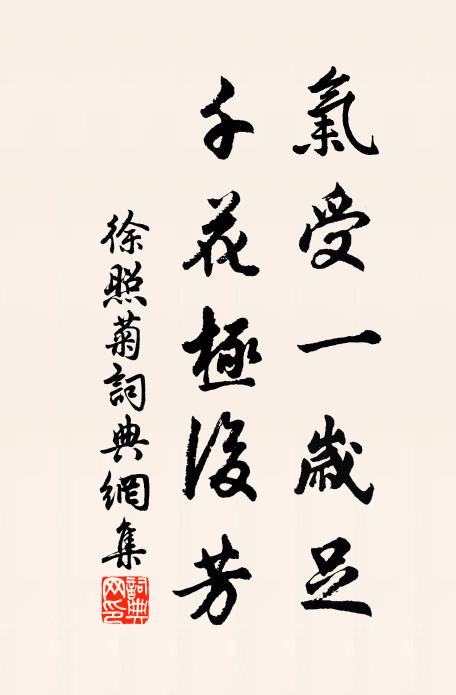 氣受一歲足
千花極後芳
徐照菊詞典網集
詞典网印